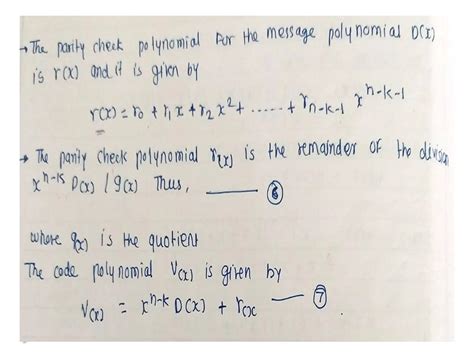 → The parity check polynomial for the message polynomial D(x)
is r(x) and it is given by
r(x) = r0 + r1x + r2x² + ...... + rn-k-1 x^n-k-1
→ The parity check polynomial r(x) is the remainder of the division
x^n-k D(x) / g(x) Thus, ——— ⑥
where q(x) is the quotient
The code polynomial V(x) is given by
V(x) = x^n-k D(x) + r(x ——— ⑦